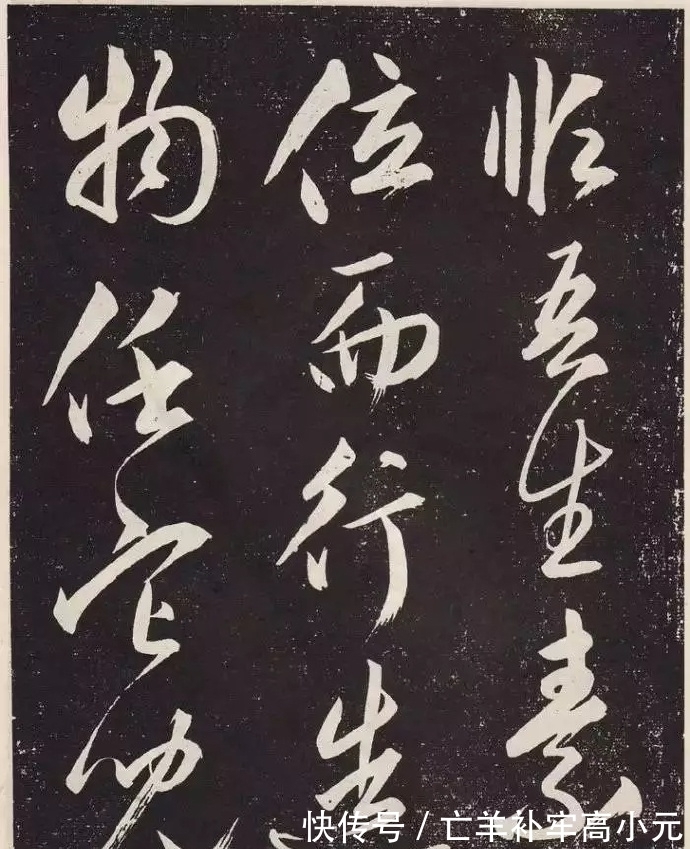 吾生素
位而行造
物任它
快传号 / 亡羊补牢高小元